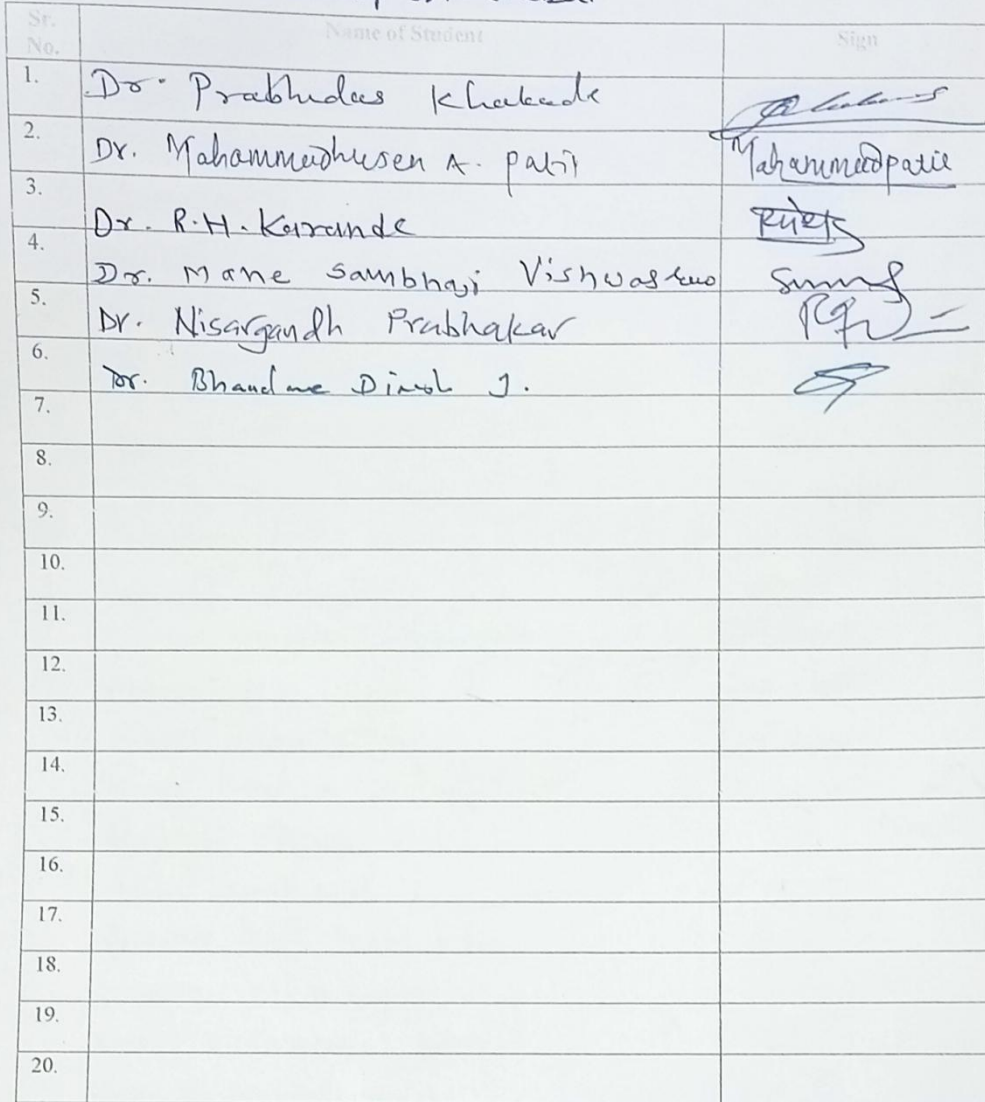 Sr. No. Name of Student Sign
1. Dr. Prabhudas Khakade
2. Dr. Mahammadhusen A. Patil Mahammadpatil
3. Dr. R.H. Karande
4. Dr. Mane Sambhaji Vishwasrao
5. Dr. Nisargandh Prabhakar
6. Dr. Bhandare J.
7.
8.
9.
10.
11.
12.
13.
14.
15.
16.
17.
18.
19.
20.